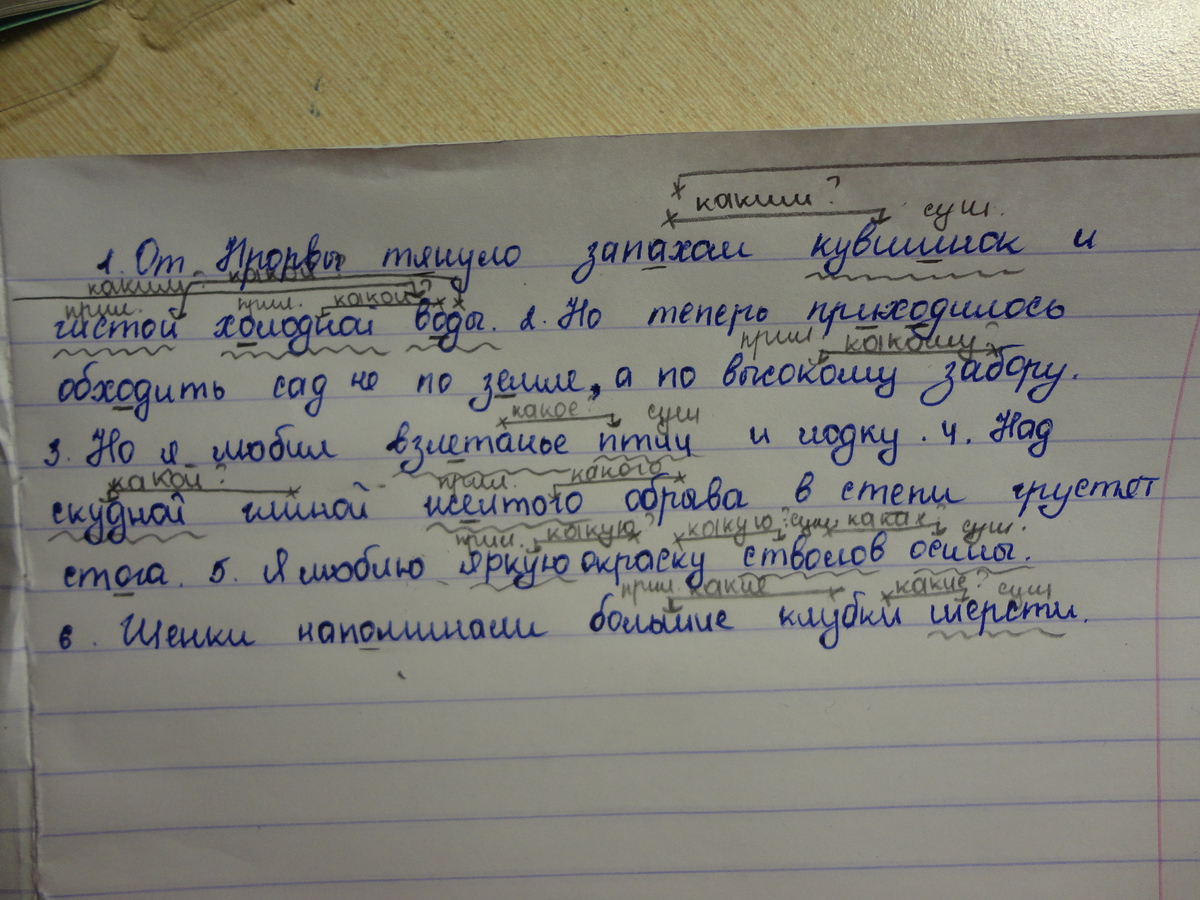 каким?
сущ.
1. От Прорвы тянуло запахом кувшинок и
каким какой
прил. прил. какой?
чистой холодной воды. 2. Но теперь приходилось
прил какому?
обходить сад не по земле, а по высокому забору.
какое? сущ
3. Но я любил взлетанье птиц и лодку. 4. Над
какой? прил. какого
скудной глиной желтого обрыва в степи грустят
прил. какую? какую? сущ. каких? сущ.
стога. 5. Я люблю яркую окраску стволов осины.
прил. какие какие? сущ
6. Щенки напоминали большие клубки шерсти.